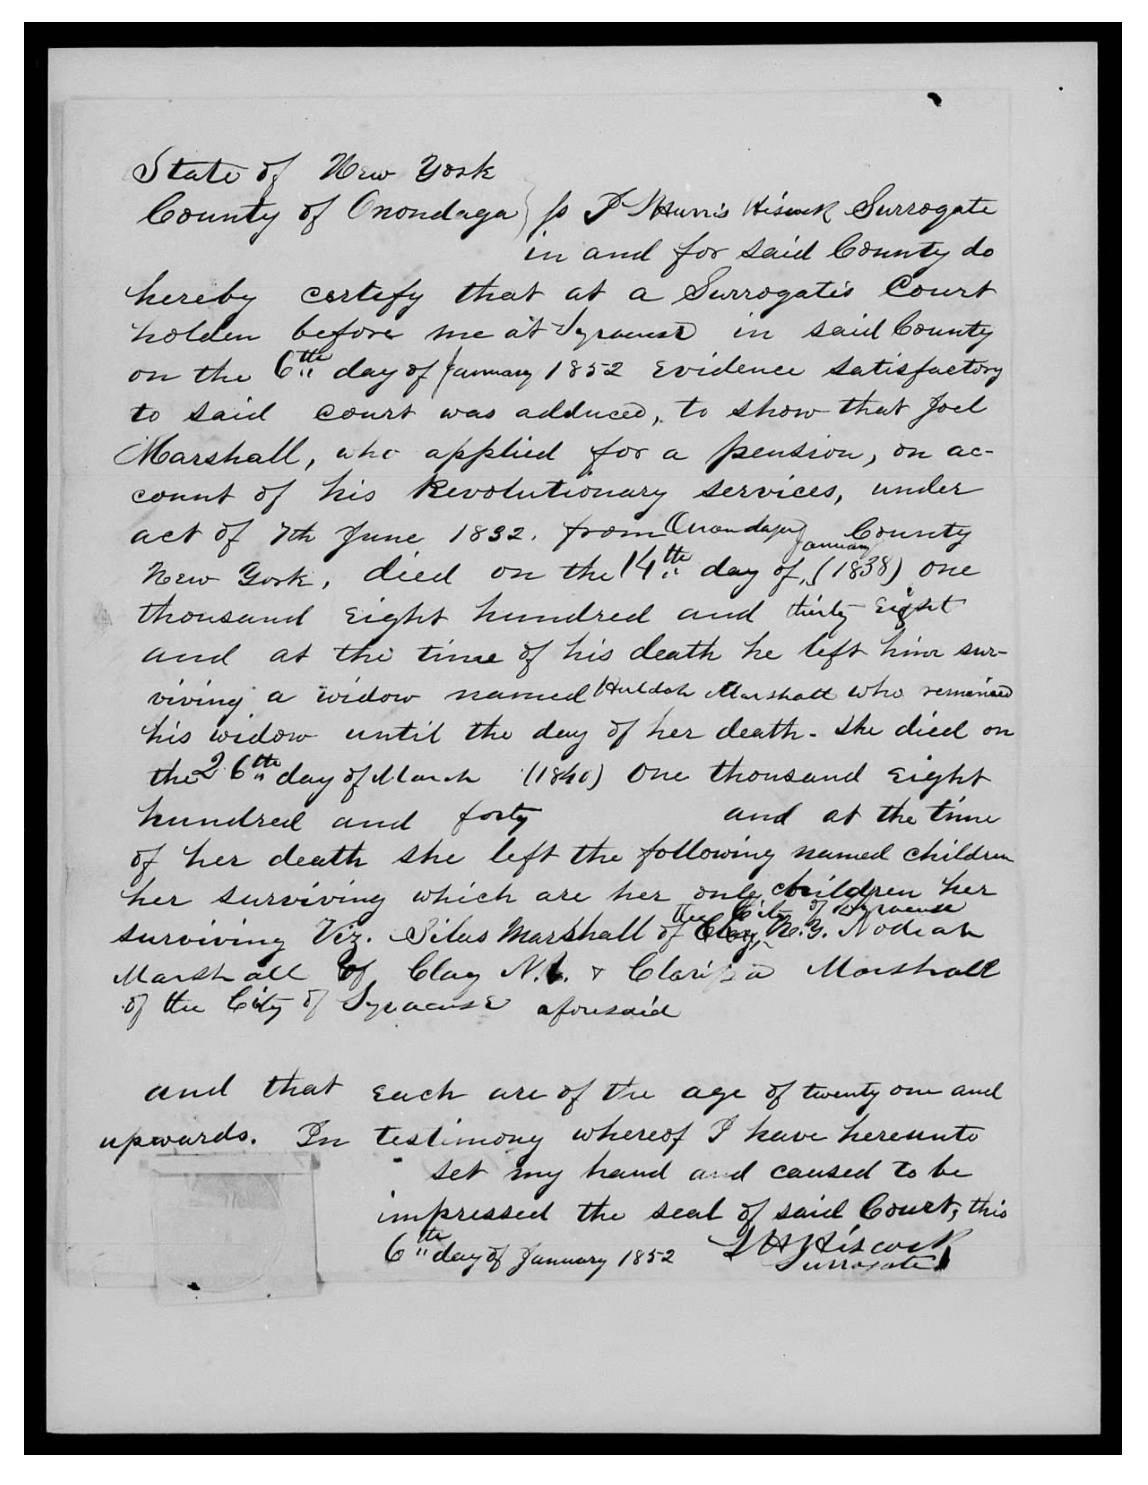 State of New York
County of Onondaga } ss I L Harris Hiscock Surrogate
in and for said County do
hereby certify that at a Surrogate's Court
holden before me at Syracuse in said County
on the 6th day of January 1852 evidence satisfactory
to said court was adduced, to show that Joel
Marshall, who applied for a pension, on ac-
count of his Revolutionary services, under
act of 7th June 1832. from Onondaga County
January
New York, died on the 14th day of, (1838) one
thousand eight hundred and thirty eight
and at the time of his death he left him sur-
viving a widow named Huldah Marshall who remained
his widow until the day of her death - she died on
the 26th day of March (1840) one thousand eight
hundred and forty and at the time
of her death she left the following named children
her surviving which are her only children her
the City of Syracuse
surviving Viz. Silas Marshall of Clay, N.Y. Nodiah
Marshall of Clay N.Y. & Clarissa Marshall
of the City of Syracuse aforesaid
and that each are of the age of twenty one and
upwards. In testimony whereof I have hereunto
set my hand and caused to be
impressed the seal of said Court, this
6th day of January 1852 L H Hiscock
Surrogate